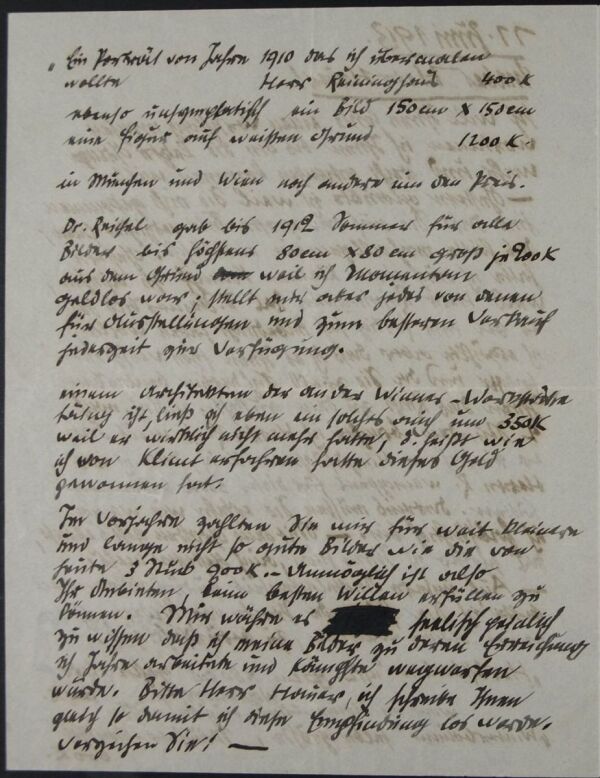 „ Ein Porträt vom Jahre 1910 das ich übermalen
wollte Herr Reininghaus 400 K
ebenso unsympatisch ein Bild 150 cm X 150 cm
eine Figur auf weißen Grund 1200 K.
in München und Wien noch andere um den Preis.
Dr. Reichel gab bis 1912 Sommer für alle
Bilder bis höchstens 80 cm X 80 cm groß je 200 K
aus dem Grund weil ich momentan
geldlos war; stellt mir aber jedes von denen
für Ausstellungen und zum besseren Verkauf
jederzeit zur Verfügung.
einem Architekten der an der Wiener-Werkstätte
tätig ist, ließ ich eben ein solches auch um 350 K
weil er wirklich nicht mehr hatte, d. heißt wie
ich von Klimt erfahren hatte dieses Geld
gewonnen hat.
Im Vorjahre zahlten Sie mir für weit kleinere
und lange nicht so gute Bilder wie die von
heute 3 Stück 900 K. – Unmöglich ist also
Ihr Anbieten, beim besten Willen erfüllen zu
können. Mir währe es seelisch
zu wissen daß ich meine Bilder zu deren Erreichung
ich Jahre arbeitete und kämpfte wegwerfen
würde. Bitte Herr Hauer, ich schreibe Ihnen
gleich so damit ich diese Empfindung los werde.
Verzeihen Sie! —